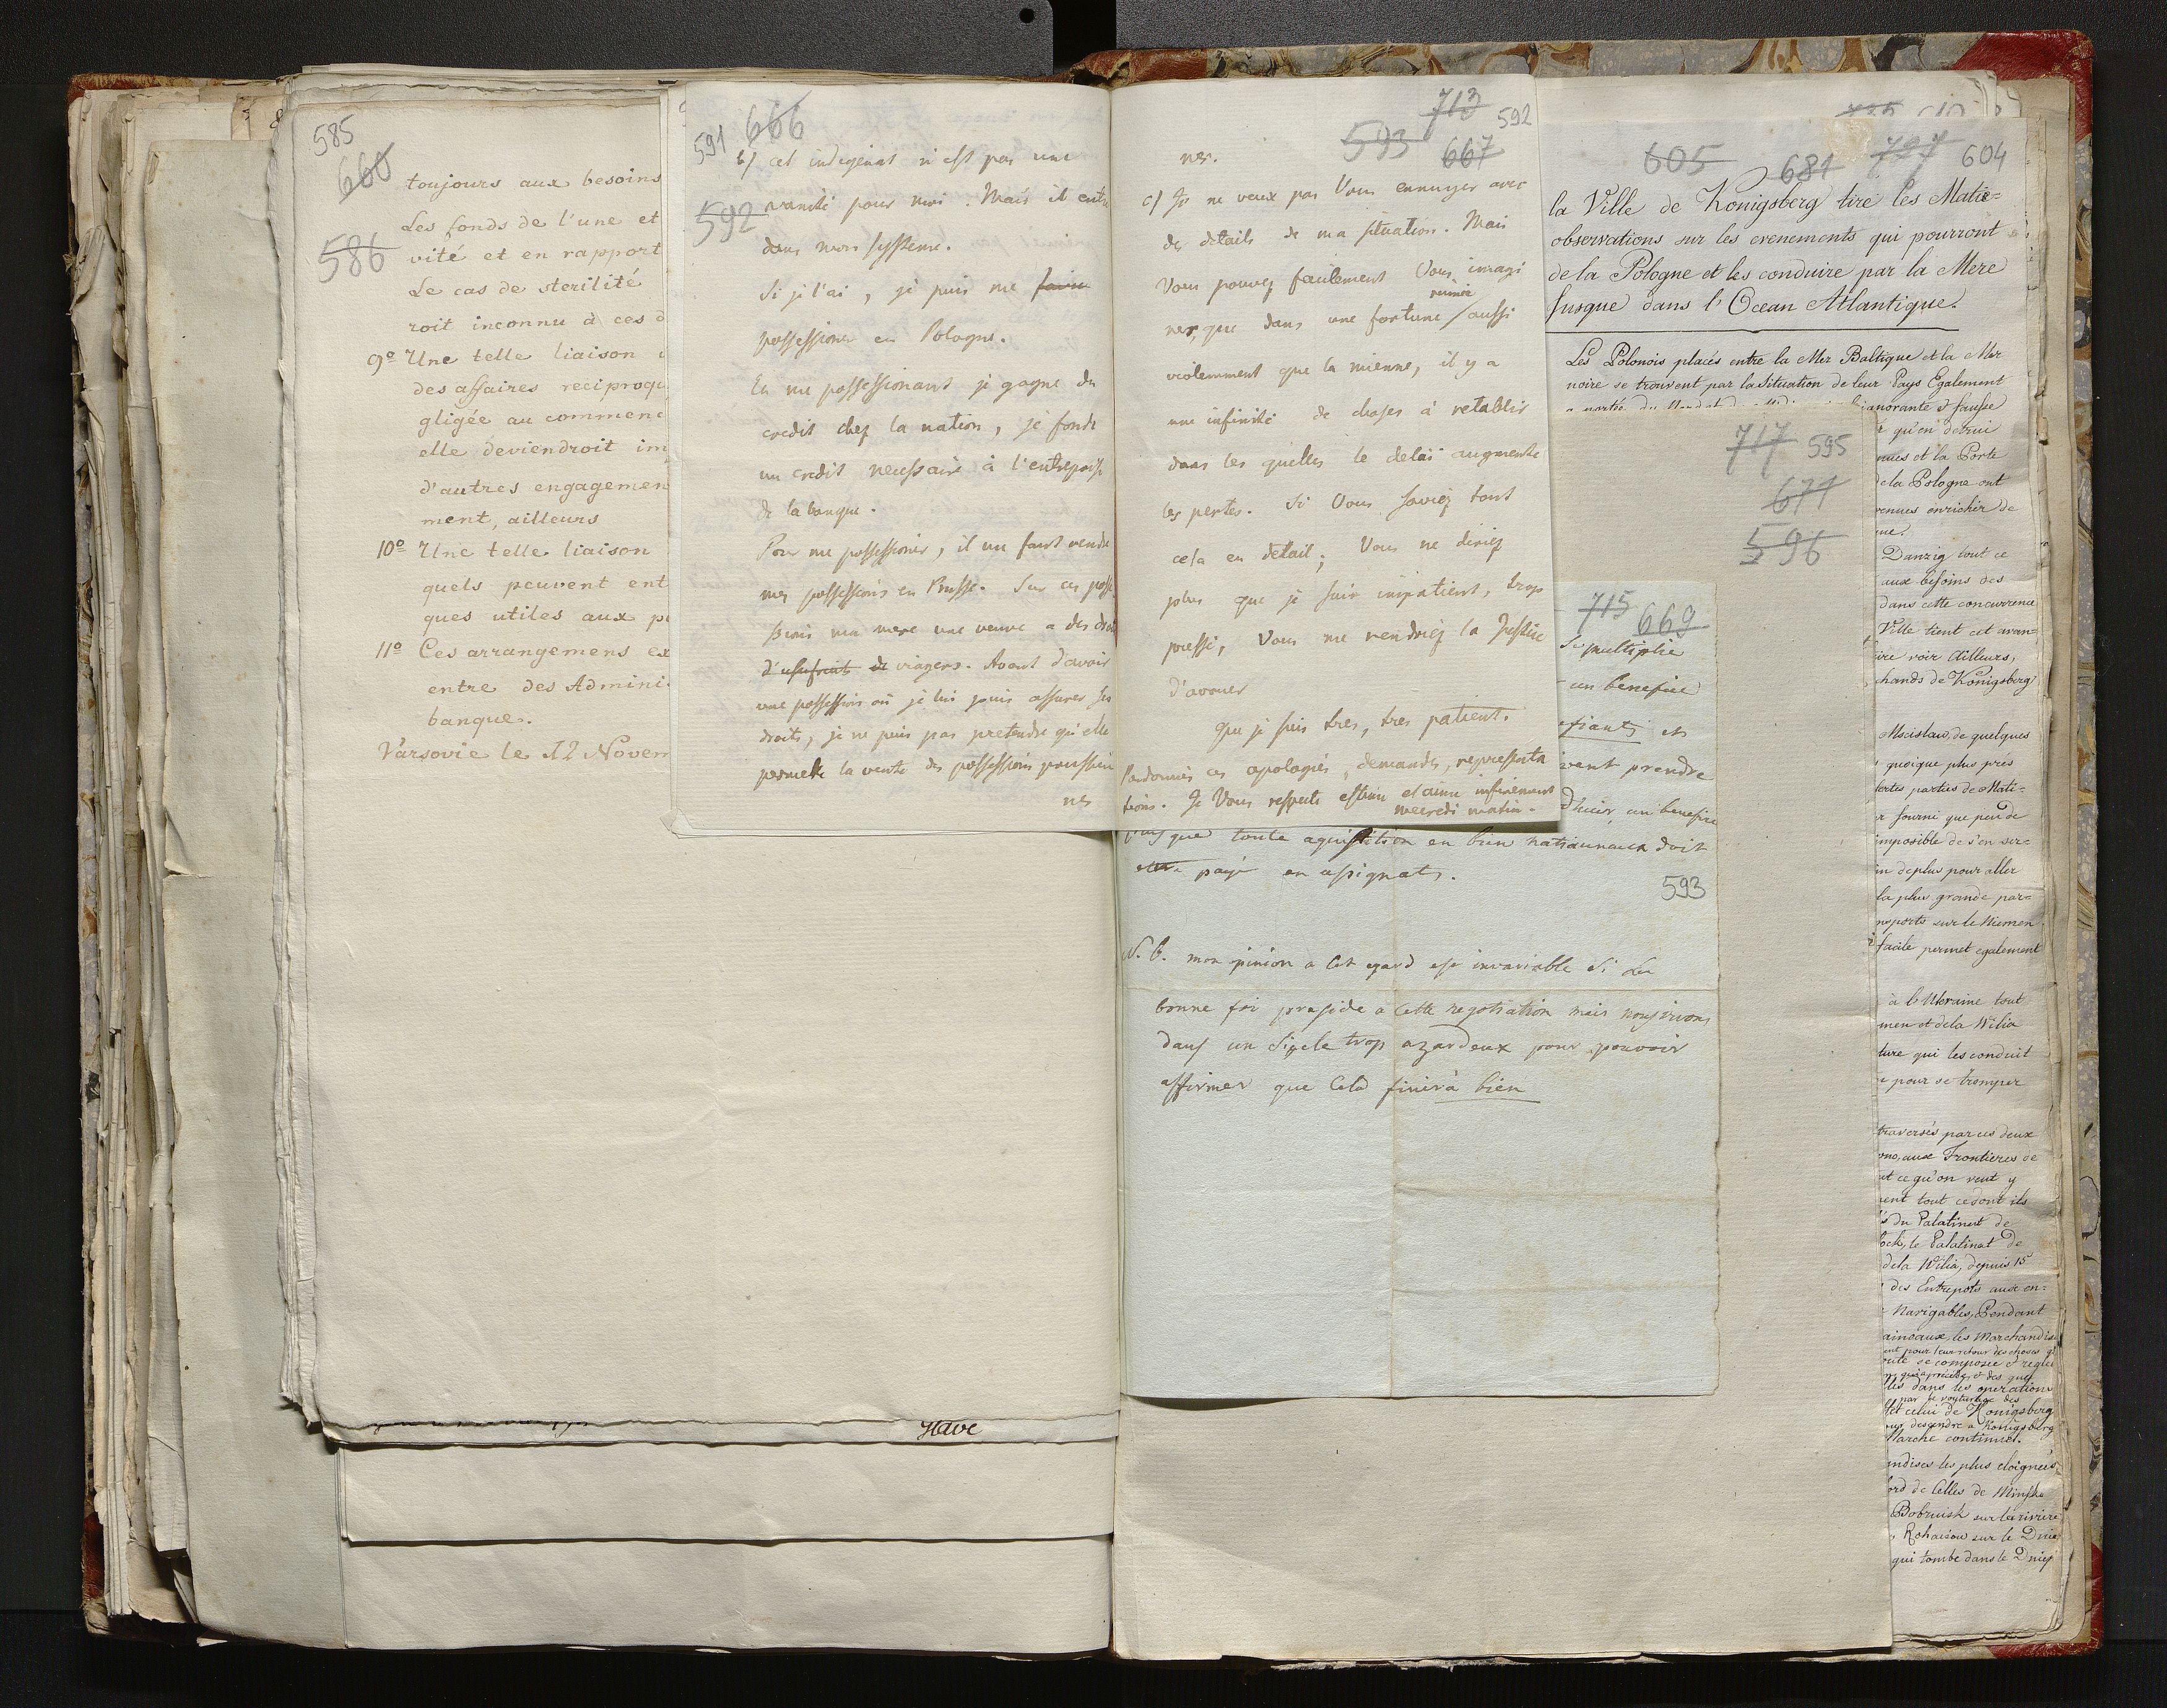 585
660
toujours aux besoins
Les fonds de l'une et
586
vité et en rapport
Le cas de sterilité
roit inconnu à ces d
9º Une telle liaison
des affaires reciproqu
gligée au commenc
elle deviendroit im
d'autres engagemen
ment, ailleurs
10º Une telle liaison
quels peuvent ent
ques utiles aux p
11º Ces arrangemens ex
entre des Admini
banque.
Varsovie le 12 Novem
Have
591
666
b) cet indigenat n'est pas une
592
vanité pour moi. Mais il entre
dans mon systeme.
Si je l'ai, je puis me faire
possessioner en Pologne.
En me possessionant je gagne du
credit chez la nation, je fonde
un credit necessaire à l'entreprise
de la banque.
Pour me possessioner, il me faut vendre
mes possessions en Prusse. Sur ces posse
sions ma mere une veuve a des droits
d'usufruit de viagers. Avant d'avoir
une possession où je lui puis assurer ses
droits, je ne puis pas pretendre qu'elle
permette la vente des possessions prussien
nes
713
592
593
667
nes.
c) Je ne veux pas Vous ennuyer avec
des details de ma situation. Mais
Vous pouvez facilement Vous imagi
ruinée
ner, que dans une fortune aussi
violemment que la mienne, il y a
une infinité de choses à retablir
dans les quelles le delai augmente
les pertes. Si Vous saviez tout
cela en detail; Vous ne diriez
plus que je suis impatient, trop
pressé, Vous me rendriez la Justice
d'avouer
que je suis tres, tres patient.
Pardonnés ces apologies, demandes, representa
tions. Je Vous respecte estime et aime infiniment
mecredi matin.
715
669
Se multiplie
un benefice
et
vent prendre
un benefice
puisque toute aquisition en bien nationnaux doit
etre payé en assignats.
593
N.B. mon opinion a cet egard est invariable si la
bonne foi preside a cette negotiation mais nous vivons
dans un siecle trop azardeux pour pouvoir
affirmer que cela finira bien
717
595
671
596
605
681
727
604
la Ville de Konigsberg tire les Matie=
observations sur les evenements qui pourront
de la Pologne et les conduire par la Mere
Jusque dans l'Ocean Atlantique.
Les Polonois placés entre la Mer Baltique et la Mer
noire se trouvent par la Situation de leur Pays Egalement
ignorante & fausse
qu'en detrui
nues et la Porte
de la Pologne ont
venues enrichir de
Danzig tout ce
aux besoins des
dans cette concurrence
Ville tient cet avan=
ire voir ailleurs,
chands de Konigsberg
Mscislaw, de quelques
quoique plus prés
fertes parties de Mati=
r fourni que peu de
imposible de s'en ser=
in deplus pour aller
la plus grande par=
nsports sur le Niemen
facile permet egalement
à l'Ukraine tout
men et de la Wilia
ture qui les conduit
e pour se tromper
traversés par ces deux
ono, aux Frontieres de
ut ce qu'on veut y
ent tout ce dont ils
s du Palatinat de
ock, le Palatinat de
de la Wilia, depuis 15
des Entrepots aux en=
Navigables, Pendant
aineaux, les Marchandise
ent pour leur retour des choses
les dans les operations
par le voyturage des
et celui de Konigsberg
our descendre a Konigsberg
Marche continuel.
ndises les plus eloignées
ord de Celles de Minsk
Bobruisk sur la riviere
Rohaczow sur le Dnie
qui tombe dans le Dniep